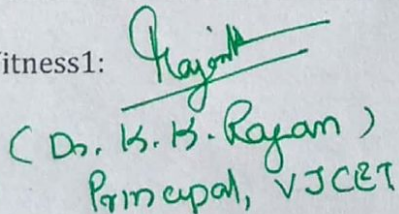 itness1:
(Dr. K. K. Rajan)
Principal, VJCET